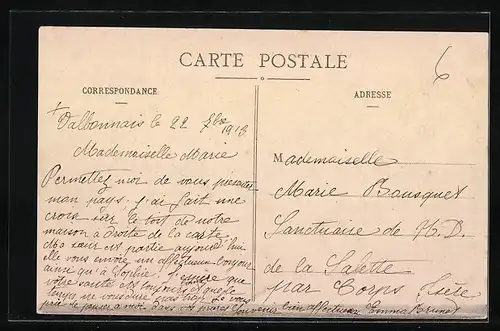 CARTE POSTALE
6
CORRESPONDANCE
ADRESSE
Valbonnais le 22 7bre 1913
Mademoiselle Marie
Permettez moi de vous presenter
mon pays. J'ai fait une
croix sur le toit de notre
maison a droite de la carte
Ma sœur est partie aujourd'hui
elle vous envoie un affectueux bonjour
ainsi qu'à Sophie. J'espère que
votre santé est toujours et que le
temps ne vous dure pas trop. Je vous
prie de penser a moi dans vos prières Souvenir bien affectueux Emma Brunet
Mademoiselle
Marie Bousquet
Sanctuaire de N. D.
de la Salette
par Corps Isère